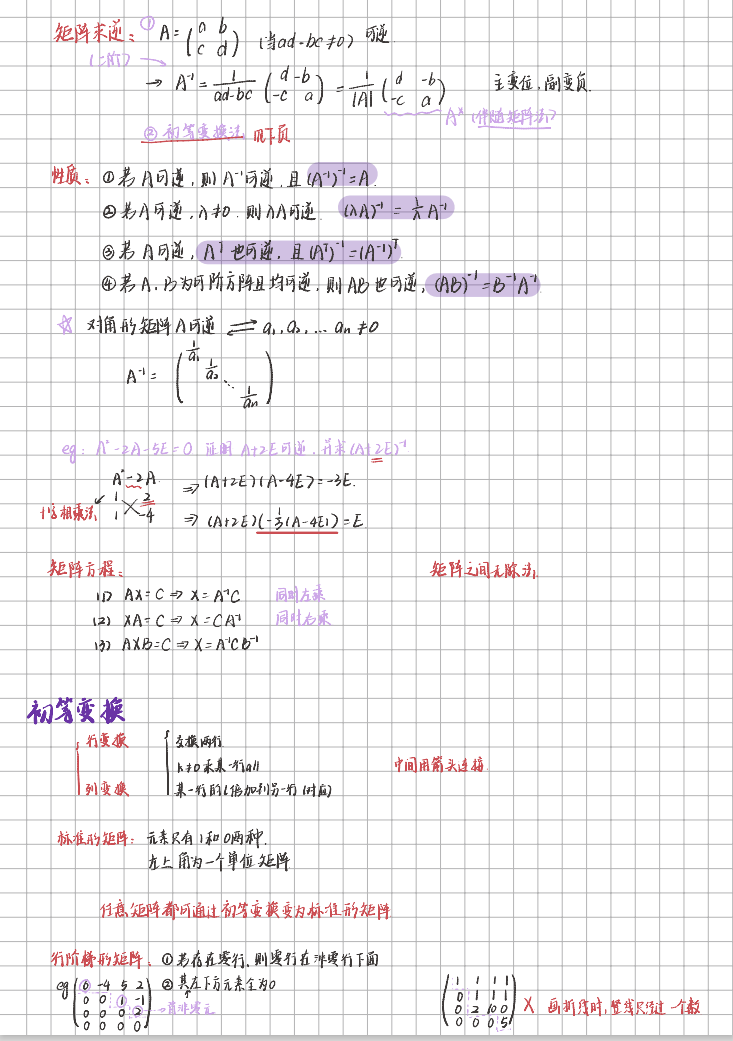 矩阵求逆: ① A = (a b; c d) (当ad-bc≠0) 可逆.
(二阶) → A⁻¹ = 1/(ad-bc) (d -b; -c a) = 1/|A| (d -b; -c a) 主变位,副变负.
A* (伴随矩阵法)
② 初等变换法 见下页
性质: ①若A可逆,则A⁻¹可逆,且(A⁻¹)⁻¹=A
②若A可逆,λ≠0.则λA可逆. (λA)⁻¹ = 1/λ A⁻¹
③若A可逆,Aᵀ也可逆,且(Aᵀ)⁻¹=(A⁻¹)ᵀ
④若A、B为同阶方阵且均可逆,则AB也可逆,(AB)⁻¹=B⁻¹A⁻¹
☆ 对角形矩阵A可逆 ⇌ a₁,a₂,… an≠0
A⁻¹ = (1/a₁ 1/a₂ ⋱ 1/an)
eg: A²-2A-5E=0 证明 A+2E可逆,并求(A+2E)⁻¹
A²-2A ⇒ (A+2E)(A-4E)=-3E.
十字相乘法 1 2
1 -4 ⇒ (A+2E)(-1/3(A-4E))=E
矩阵方程: 矩阵之间无除法
(1) AX=C ⇒ X=A⁻¹C 同时左乘
(2) XA=C ⇒ X=CA⁻¹ 同时右乘
(3) AXB=C ⇒ X=A⁻¹CB⁻¹
初等变换
行变换 互换两行
k≠0乘某一行all 中间用箭头连接
列变换 某一行的l倍加到另一行(对应)
标准形矩阵: 元素只有1和0两种.
左上角为一个单位矩阵
任意矩阵都可通过初等变换变为标准形矩阵
行阶梯形矩阵: ①若存在零行,则零行在非零行下面
eg (0 -4 5 2 ②其左下方元素全为0
0 0 1 -1
0 0 0 2 → 首非零元
0 0 0 0)
(1 1 1 1
0 1 1 1
0 2 10 0
0 0 0 5) X 画折线时,竖线只经过一个数